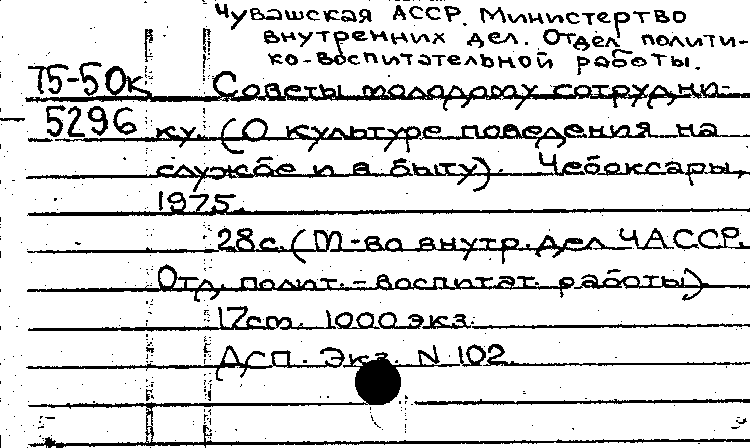 Чувашская АССР. Министертво
внутренних дел. Отдел полити-
ко-воспитательной работы.
Т5-50к Советы молодому сотрудни-
5296 ку. (О культуре поведения на
службе и в быту). Чебоксары,
1975.
28с. (М-во внутр. дел ЧАССР.
Отд. полит.-воспитат. работы)
17cm. 1000 экз.
ДСП. Экз. N 102.